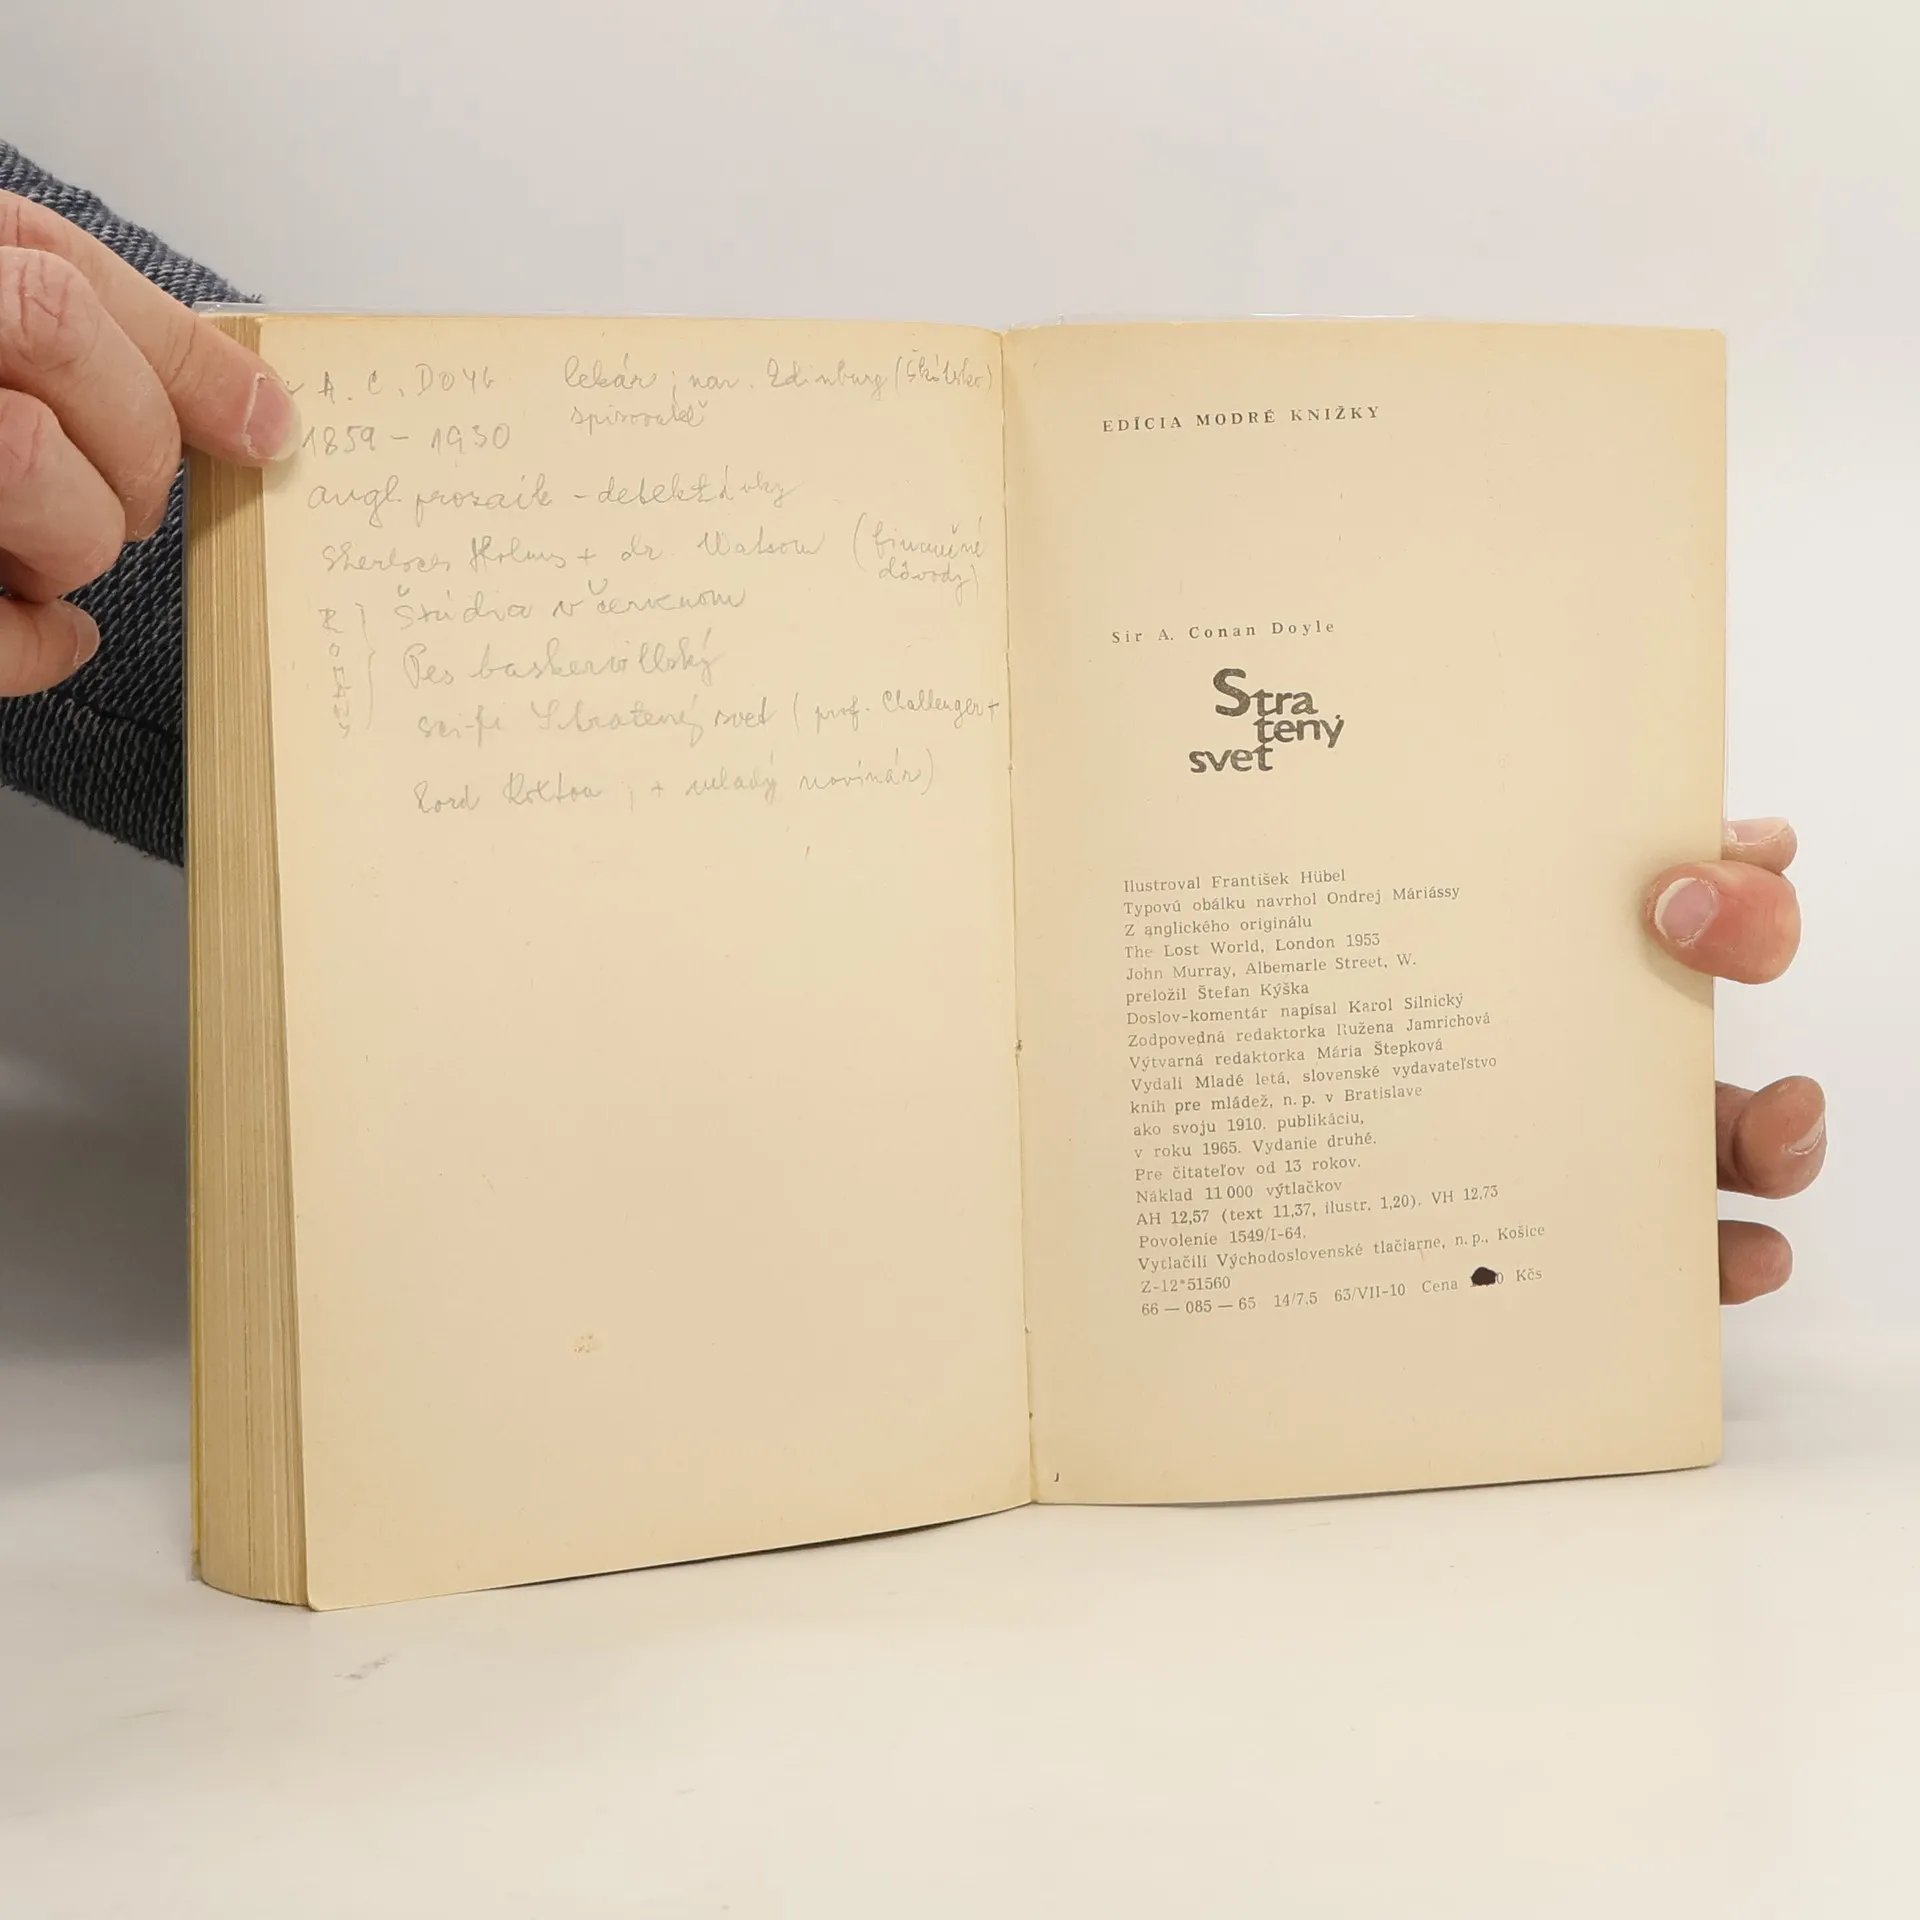 A. C. DOYL lekár; nar. Edinburg (Škótsko)
spisovateľ
1859 - 1930
angl. prozaik - detektívky
Sherloces Holms + dr. Watson (finančné
dôvody)
Štúdia v červenom
Pes baskervillský
sci-fi Stratený svet (prof. Challenger +
lord Roxton ; + mladý novinár)
EDÍCIA MODRÉ KNIŽKY
Sir A. Conan Doyle
Stra
tený
svet
Ilustroval František Hübel
Typovú obálku navrhol Ondrej Máriássy
Z anglického originálu
The Lost World, London 1953
John Murray, Albemarle Street, W.
preložil Štefan Kýška
Doslov-komentár napísal Karol Silnický
Zodpovedná redaktorka Ružena Jamrichová
Výtvarná redaktorka Mária Štepková
Vydali Mladé letá, slovenské vydavateľstvo
kníh pre mládež, n. p. v Bratislave
ako svoju 1910. publikáciu,
v roku 1965. Vydanie druhé.
Pre čitateľov od 13 rokov.
Náklad 11 000 výtlačkov
AH 12,57 (text 11,37, ilustr. 1,20). VH 12,73
Povolenie 1549/I-64.
Vytlačili Východoslovenské tlačiarne, n. p., Košice
Z-12*51560
66 — 085 — 65 14/7.5 63/VII-10 Cena Kčs